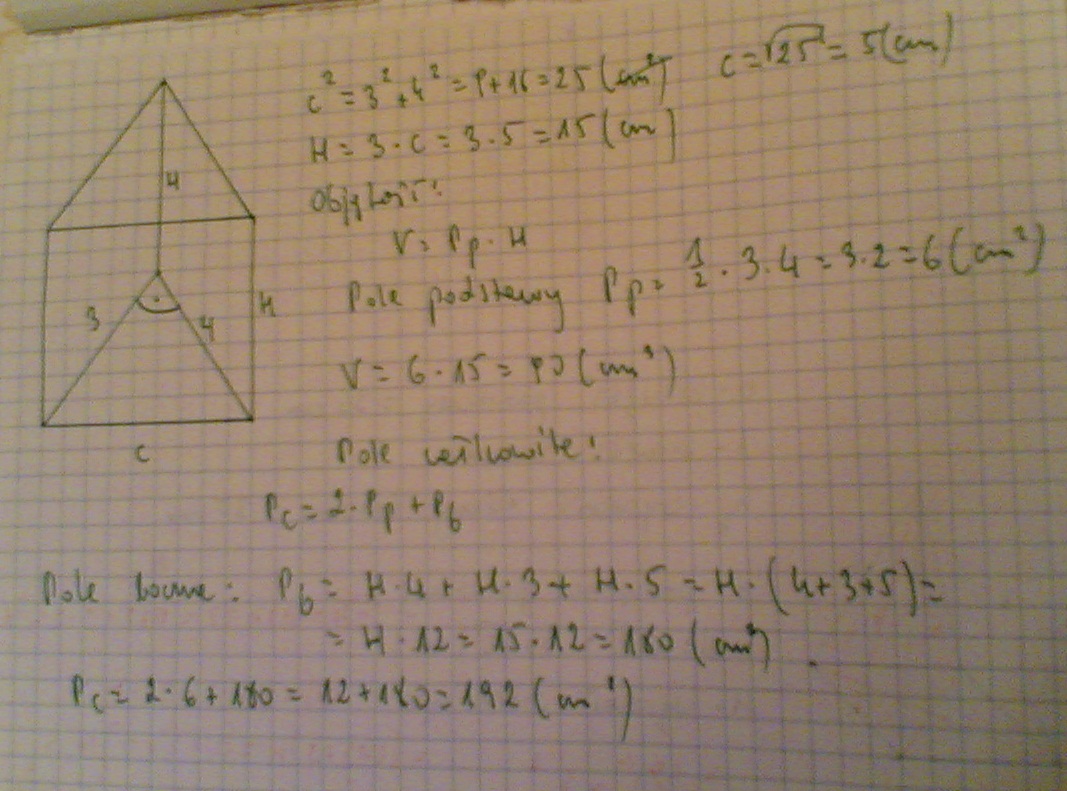 c² = 3² + 4² = 9 + 16 = 25 (cm²) c = √25 = 5 (cm)
H = 3 · c = 3 · 5 = 15 (cm)
Objętość:
V = Pp · H
Pole podstawy Pp = 1/2 · 3 · 4 = 3 · 2 = 6 (cm²)
V = 6 · 15 = 90 (cm³)
Pole całkowite:
Pc = 2 · Pp + Pb
Pole boczne: Pb = H · 4 + H · 3 + H · 5 = H · (4 + 3 + 5) =
= H · 12 = 15 · 12 = 180 (cm²)
Pc = 2 · 6 + 180 = 12 + 180 = 192 (cm²)
H
3
4
H
c